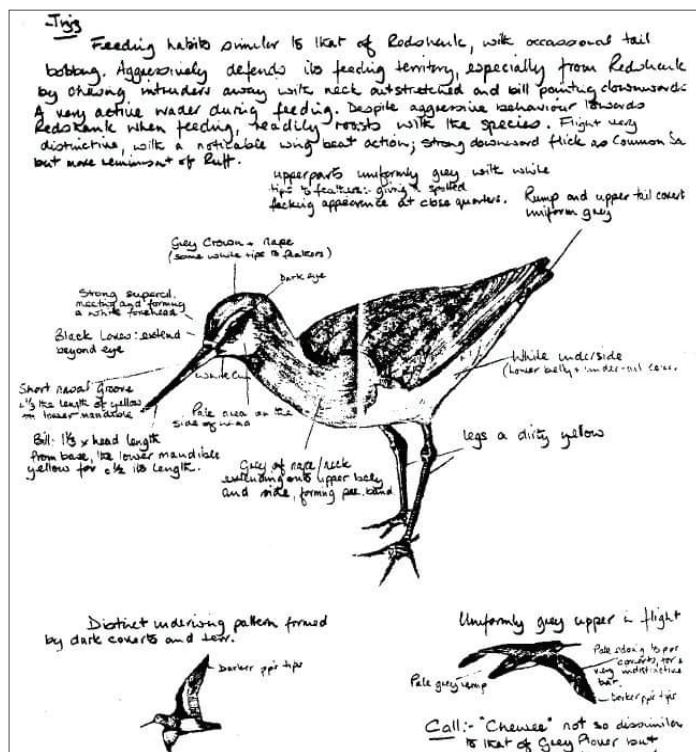 Feeding habits similar to that of Redshank, with occassonal tail
bobbing. Aggressively defends its feeding territory, especially from Redshank
by chasing intruders away with neck outstretched and bill pointing downwards
A very active wader during feeding. Despite aggressive behaviour towards
Redshank when feeding, readily roosts with the species. Flight very
distinctive, with a noticable wing beat action; strong downward flick as Common Sa
but more reminisant of Ruff.
upperparts uniformly grey with white
tips to feathers:- giving a spotted
appearence at close quarters.
Rump and upper tail coverts
uniform grey
Grey Crown + nape
(some white tips to feathers)
Dark eye
Strong supercil.
meeting and forming
a white forehead
Black Lores: extend
beyond eye
White
Short nasal groove
c 1/3 the length of yellow
on lower mandible
Pale area on the
side of
Bill: 1 1/3 x head length
from base, the lower mandible
yellow for c 1/2 its length.
Grey of nape/neck
extending onto upper belly
and side, forming pec. band
White underside
(lower belly + under-tail
legs a dirty yellow
Distinct underwing pattern formed
by dark coverts and
Darker ppr tips
Uniformly grey upper in flight
Pale edging to ppr
coverts, for a
very indistinctive
bar.
Pale grey rump
Darker ppr tips
Call:- "Chewee" not so dissimilar
to that of Grey Plover but